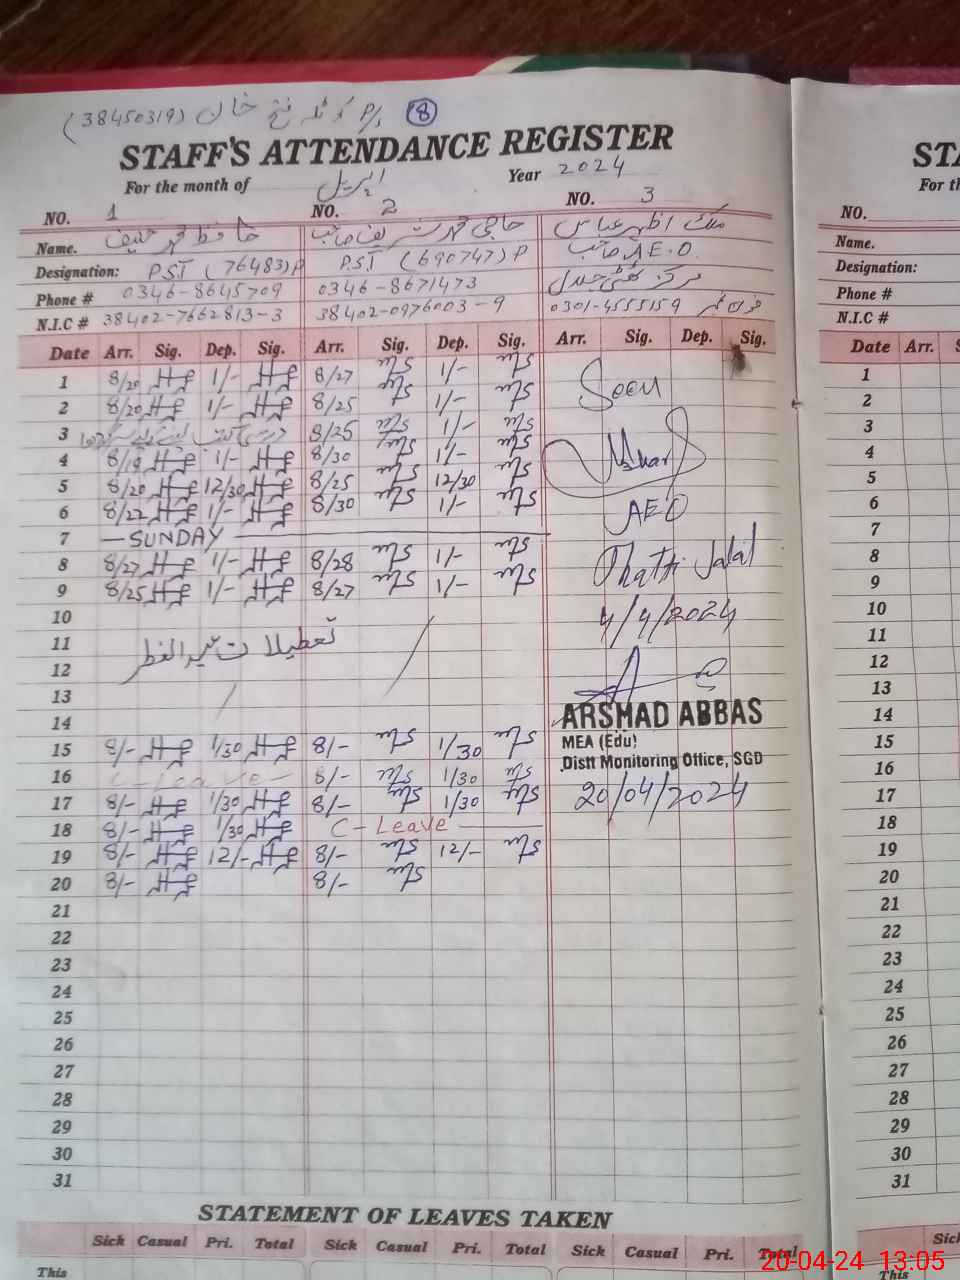 (38450319) کوٹلہ فتح خان P/s 8
STAFF'S ATTENDANCE REGISTER
For the month of اپریل Year 2024
NO. 1 NO. 2 NO. 3
Name. حافظ محمد حنیف حاجی محمد شریف صاحب ملک اظہر عباس
Designation: P.S.T (76483)P P.S.T (690747)P صاحب A.E.O
Phone # 0346-8645709 0346-8671473 مرکز
N.I.C # 38402-7662813-3 38402-0976003-9 0301-4555159 فون نمبر
Date Arr. Sig. Dep. Sig. Arr. Sig. Dep. Sig. Arr. Sig. Dep. Sig.
1 8/20 1/- 8/27 1/-
2 8/20 1/- 8/25 1/- Seen
3 8/25 1/-
4 8/19 1/- 8/30 1/-
5 8/20 12/30 8/25 12/30
6 8/22 1/- 8/30 1/- AEO
7 — SUNDAY —
8 8/27 1/- 8/28 1/- Thatti Jalal
9 8/25 1/- 8/27 1/-
10 4/4/2024
11 تعطیلات عید الفطر
12
13
14 ARSHAD ABBAS
15 8/- 1/30 8/- 1/30 MEA (Edu)
16 C-Leave - 8/- 1/30 Distt Monitoring Office, SGD
17 8/- 1/30 8/- 1/30 20/04/2024
18 8/- 1/30 C-Leave
19 8/- 12/- 8/- 12/-
20 8/- 8/-
21
22
23
24
25
26
27
28
29
30
31
STATEMENT OF LEAVES TAKEN
Sick Casual Pri. Total Sick Casual Pri. Total Sick Casual Pri. Total
This
STA
For th
NO.
Name.
Designation:
Phone #
N.I.C #
Date Arr. S
1
2
3
4
5
6
7
8
9
10
11
12
13
14
15
16
17
18
19
20
21
22
23
24
25
26
27
28
29
30
31
Sick
This
20-04-24 13:05